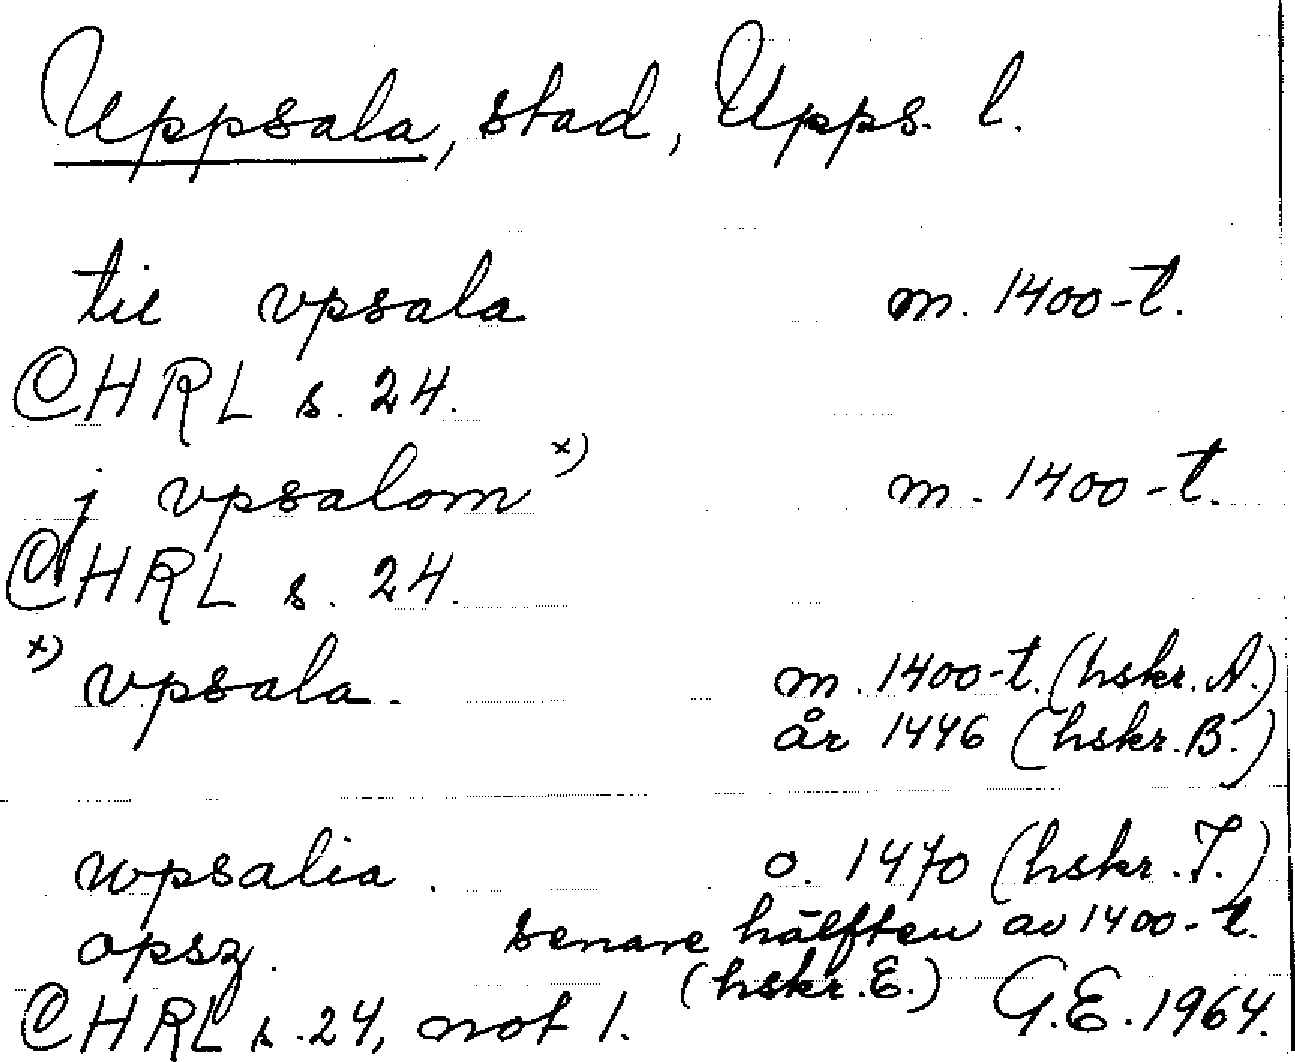 Uppsala, stad, Upps. l.
til vpsala m. 1400-t.
CHRL s. 24.
j vpsalom x) m. 1400-t.
CHRL s. 24.
x) vpsala. m. 1400-t. (hskr. A.)
år 1446 (hskr. B.)
wpsalia. o. 1470 (hskr. T.)
opsz. senare hälften av 1400-t.
(hskr. E.)
CHRL s. 24, not 1. G.E. 1964.